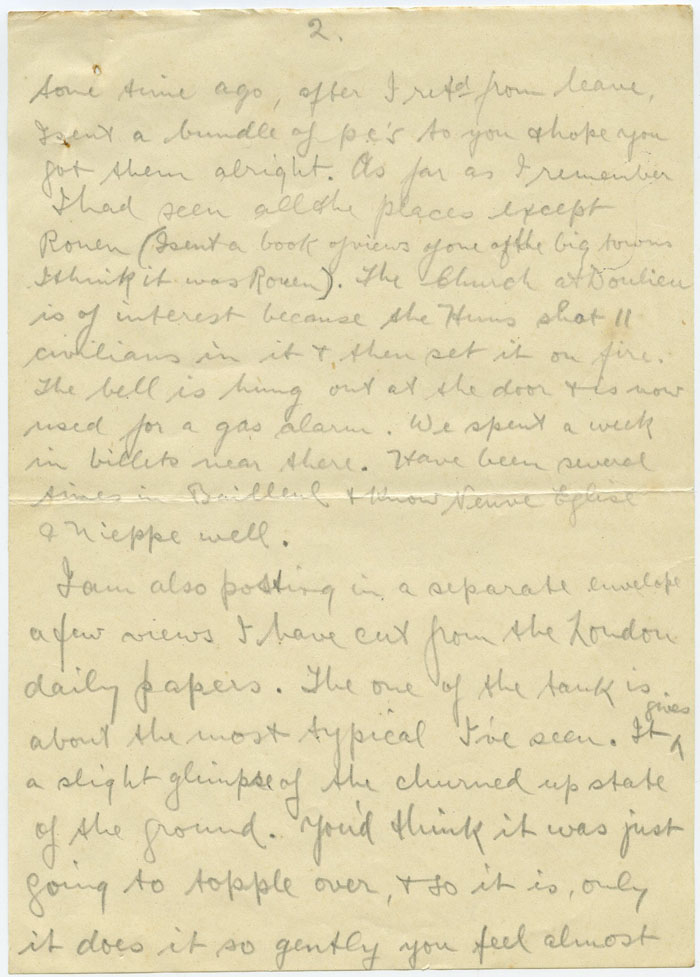 2.
some time ago, after I retd from leave,
I sent a bundle of pc's to you & hope you
got them alright. As far as I remember
I had seen all the places except
Rouen (I sent a book of views of one of the big towns
I think it was Rouen). The Church at Doulieu
is of interest because the Huns shot 11
civilians in it & then set it on fire.
The bell is hung out at the door & is now
used for a gas alarm. We spent a week
in billets near there. Have been several
times in Bailleul & know Neuve Eglise
& Nieppe well.
I am also posting in a separate envelope
a few views I have cut from the London
daily papers. The one of the tank is
about the most typical I've seen. It gives
a slight glimpse of the churned up state
of the ground. You'd think it was just
going to topple over, & so it is, only
it does it so gently you feel almost